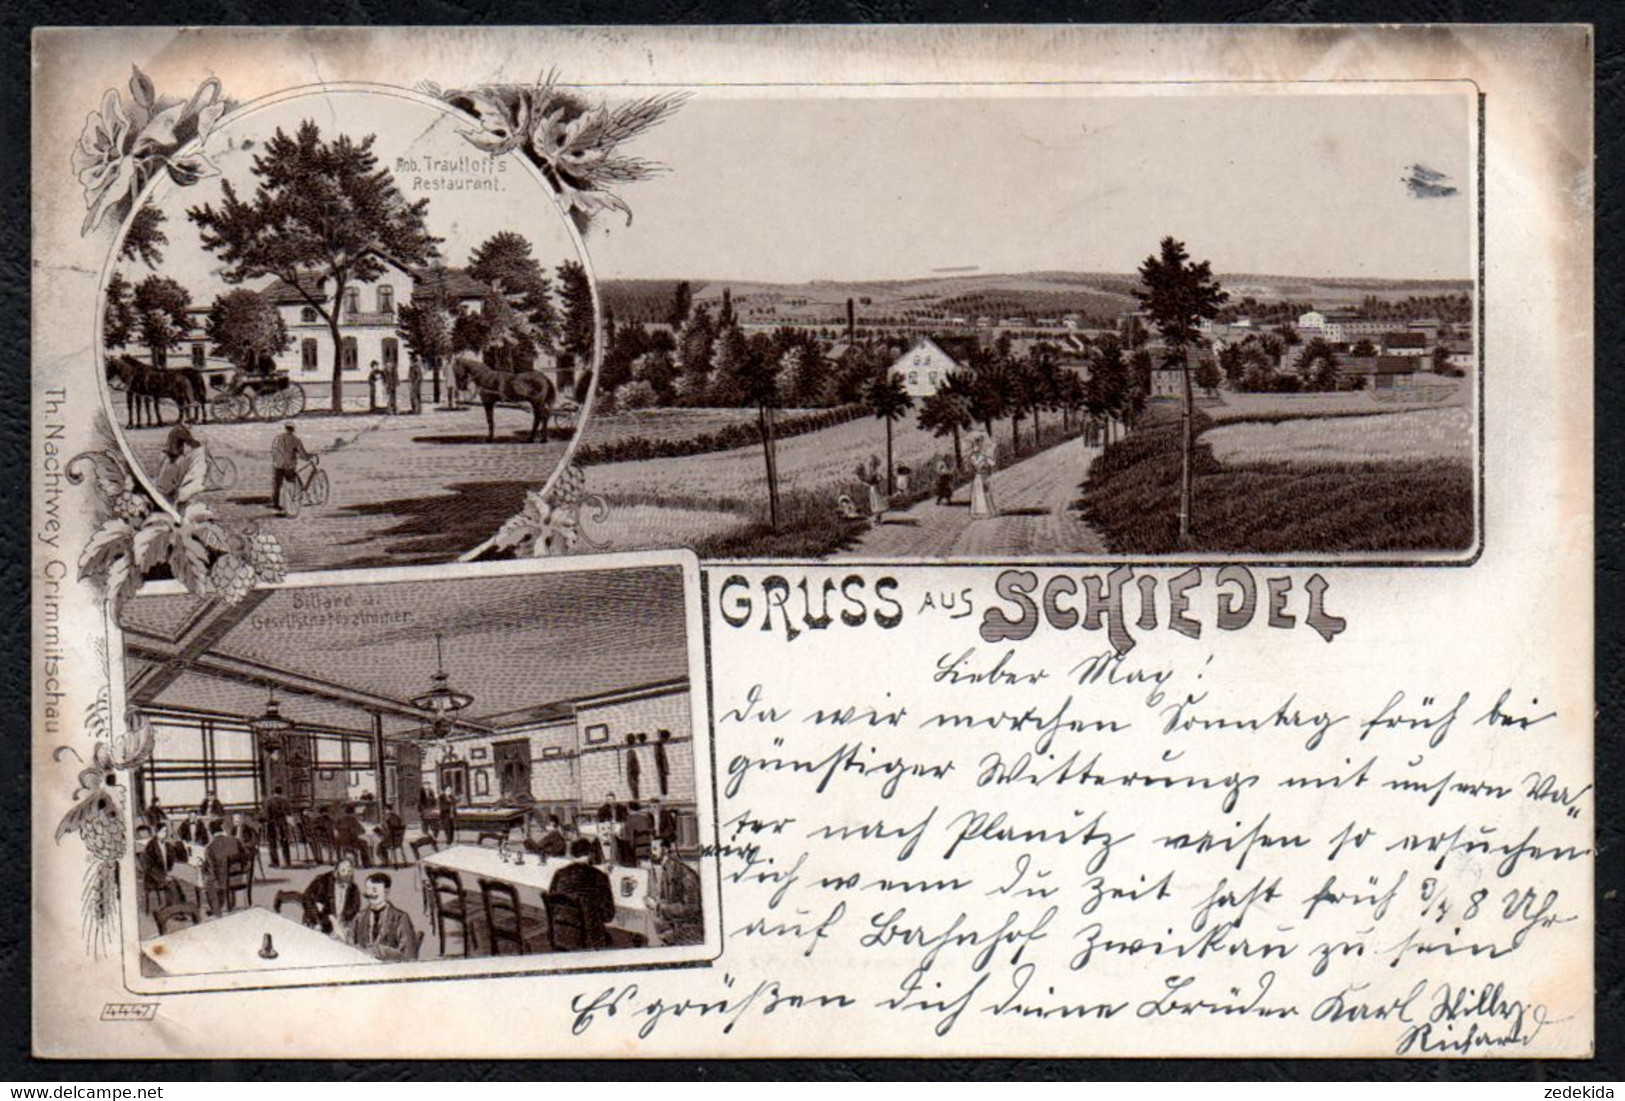 Rob. Trautloff's
Restaurant.
Billard u.
Gesellschaftszimmer.
GRUSS AUS SCHIEDEL
Lieber Max!
Da wir morchen Sonntag früh bei
günstiger Witterung mit unsern Va-
ter nach Planitz reisen so ersuchen
wir
dich wenn du Zeit hast früh 3/4 8 Uhr
auf Bahnhof Zwickau zu sein
Es grüßen dich deine Brüder Karl Willy
Richard
Th. Nachtvey Crimmitschau
4447
zedekida